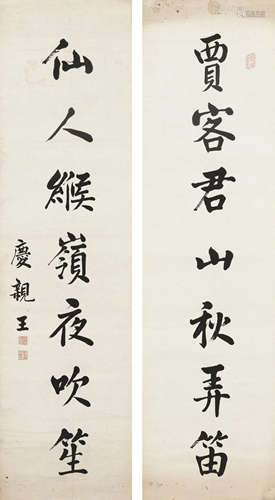 賈客君山秋弄笛
仙人緱嶺夜吹笙
慶親王